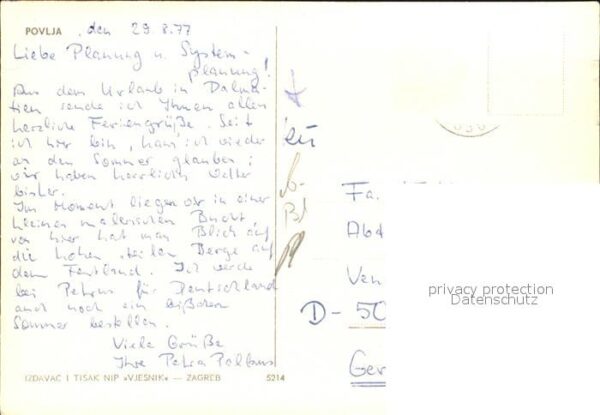 POVLJA, den 29.8.77
Liebe Planung u. System-
planung!
Aus dem Urlaub in Dalma-
tien sende ich Ihnen allen
herzliche Feriengrüße. Seit
ich hier bin, kann ich wieder
an den Sommer glauben;
wir haben herrlich Wetter
bisher.
Im Moment liegen wir in einer
kleinen malerischen Bucht,
von hier hat man Blick auf
die hohen steilen Berge auf
dem Festland. Ich werde
bei Petrus für Deutschland
auch noch ein bißchen
Sommer bestellen.
Viele Grüße
Ihre Petra
IZDAVAC I TISAK NIP »VJESNIK« — ZAGREB 5214
Fa.
Abt
Ven
D-50
Ger
privacy protection
Datenschutz